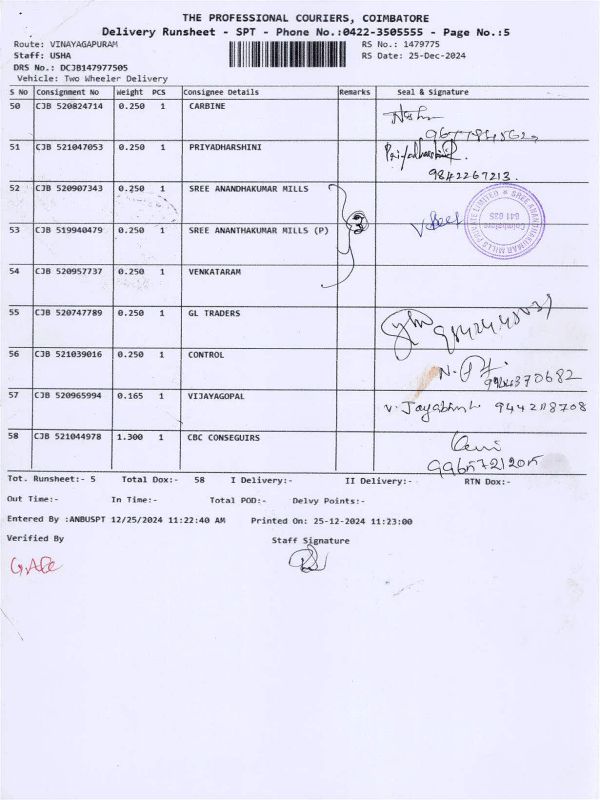 THE PROFESSIONAL COURIERS, COIMBATORE
Delivery Runsheet - SPT - Phone No.:0422-3505555 - Page No.:5
Route: VINAYAGAPURAM
RS No.: 1479775
Staff: USHA
RS Date: 25-Dec-2024
DRS No.: DCJB147977505
Vehicle: Two Wheeler Delivery
S No Consignment No Weight PCS Consignee Details Remarks Seal & Signature
50 CJB 520824714 0.250 1 CARBINE
51 CJB 521047053 0.250 1 PRIYADHARSHINI Priyadharshini
9842267213.
52 CJB 520907343 0.250 1 SREE ANANDHAKUMAR MILLS
3
SREE ANANDHAKUMAR MILLS PRIVATE LIMITED
Coimbatore
641 035
53 CJB 519940479 0.250 1 SREE ANANTHAKUMAR MILLS (P)
54 CJB 520957737 0.250 1 VENKATARAM
55 CJB 520747789 0.250 1 GL TRADERS
56 CJB 521039016 0.250 1 CONTROL
57 CJB 520965994 0.165 1 VIJAYAGOPAL V. 9442118708
58 CJB 521044978 1.300 1 CBC CONSEGUIRS
Tot. Runsheet:- 5 Total Dox:- 58 I Delivery:- II Delivery:- RTN Dox:-
Out Time:- In Time:- Total POD:- Delvy Points:-
Entered By :ANBUSPT 12/25/2024 11:22:40 AM Printed On: 25-12-2024 11:23:00
Verified By Staff Signature